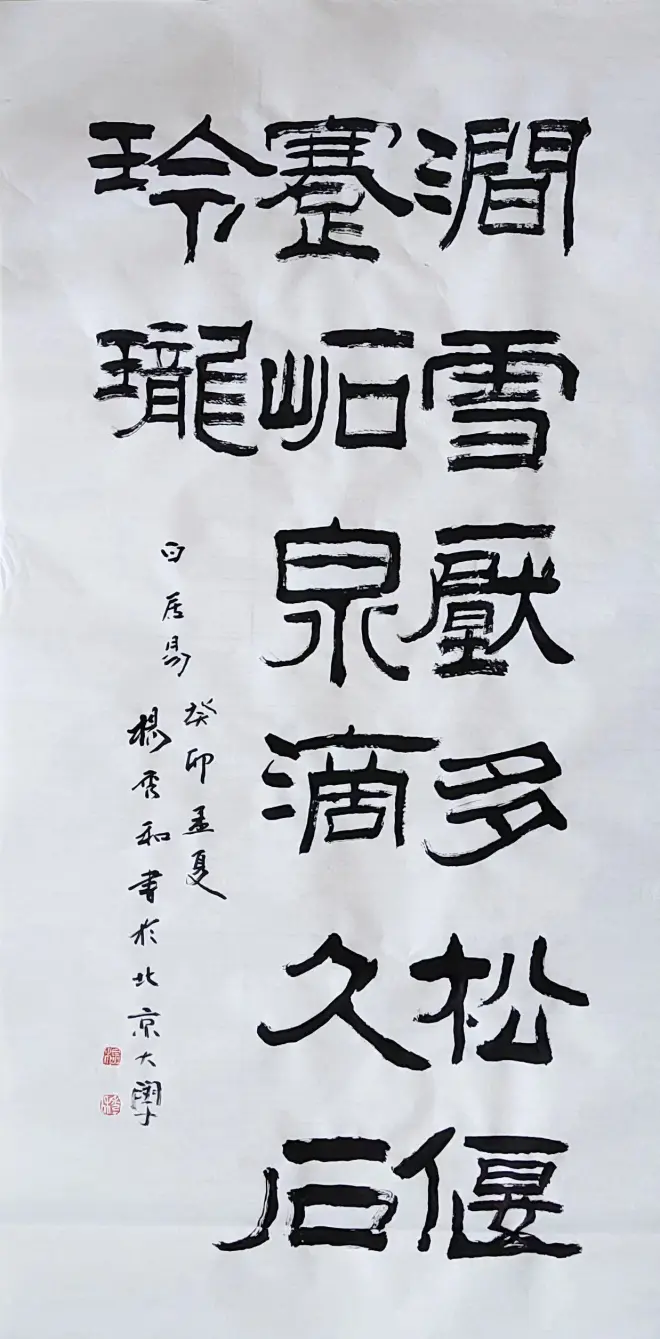 澗雪壓多松偃
蹇岩泉滴久石
玲瓏
白居易
癸卯孟夏
楊秀和書於北京大學